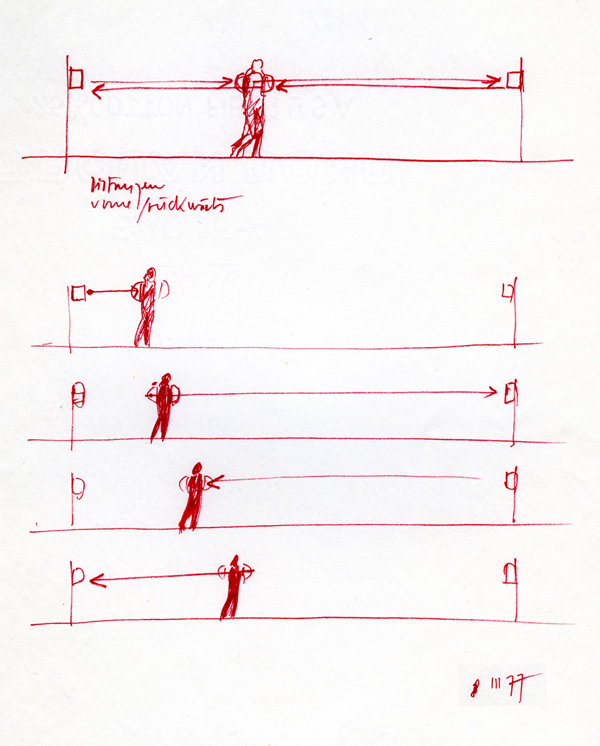 Distanzen
vorne/rückwärts
8 III 77